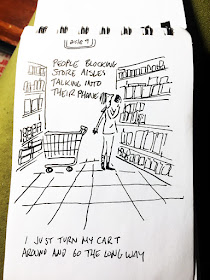 PEOPLE BLOCKING
STORE AISLES
TALKING INTO
THEIR PHONE
I JUST TURN MY CART
AROUND AND GO THE LONG WAY